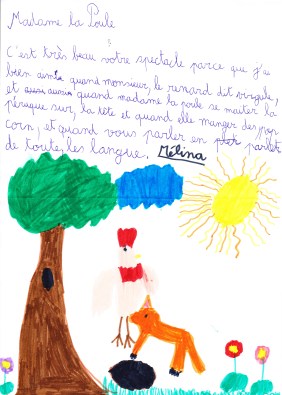 Madame la Poule
C'est très beau votre spectacle parce que j'ai
bien aimé quand monsieur, le renard dit virgule,
et aussi quand madame la poule se maiter la
péruque sur, la tête et quand elle manger des pop
corn, et quand vous parler en parlete
de toute, les langue. Mélina